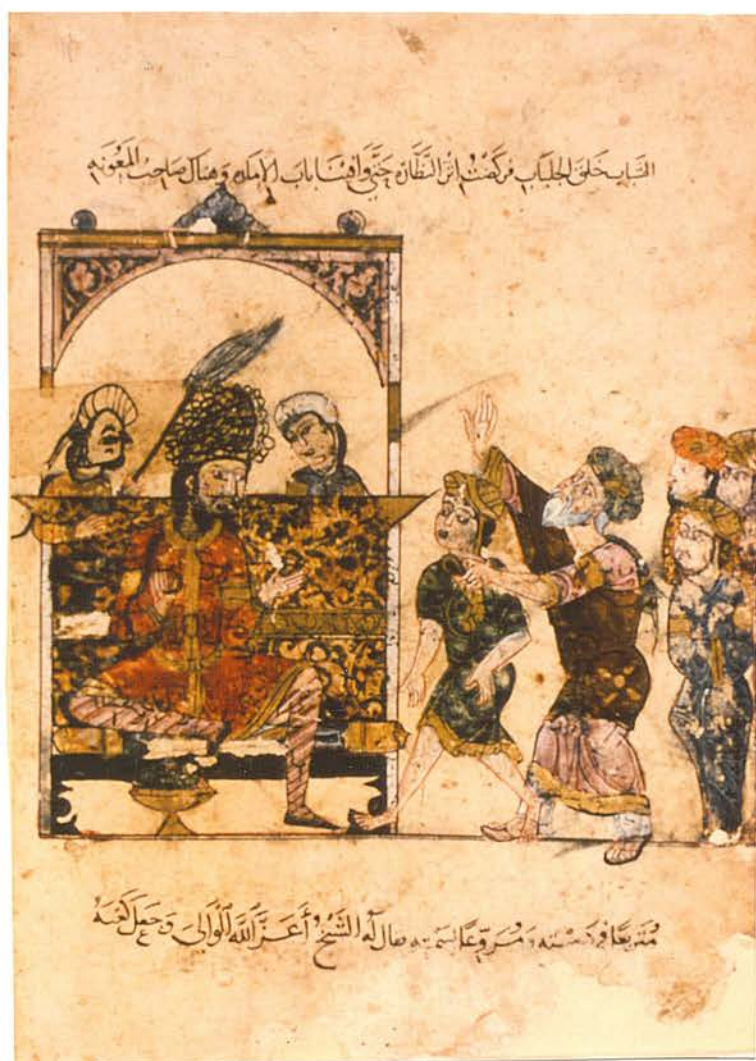 الشباب خلق الجلباب فركضت اثر النظاره حتى وافينا باب الاماره وهناك صاحب المعونه
متربعا في دسته ومروعا بسمته فقال له الشيخ أعز الله الوالي وجعل كعبه